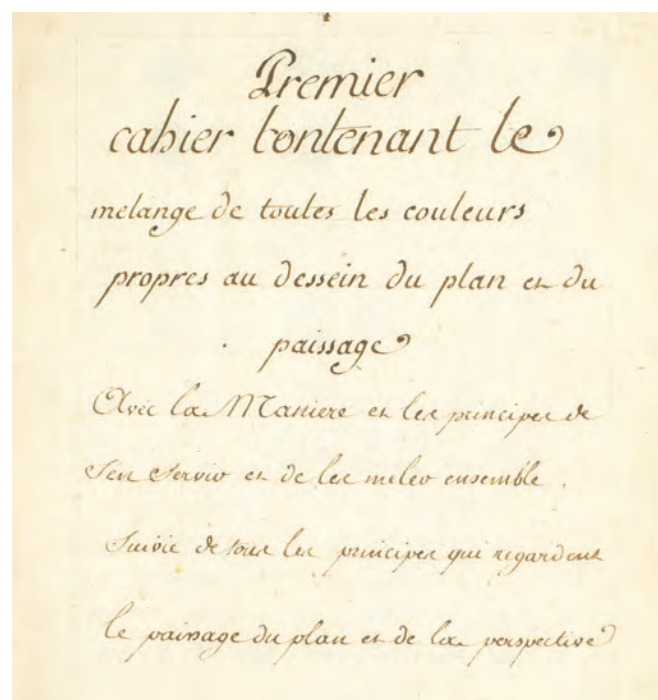 Premier
cahier Contenant le
melange de toutes les couleurs
propres au dessein du plan et du
paissage
Avec la Maniere et les principes de
sen servir et de les meler ensemble.
Suivie de tous les principes qui regardent
le paissage du plan et de la perspective